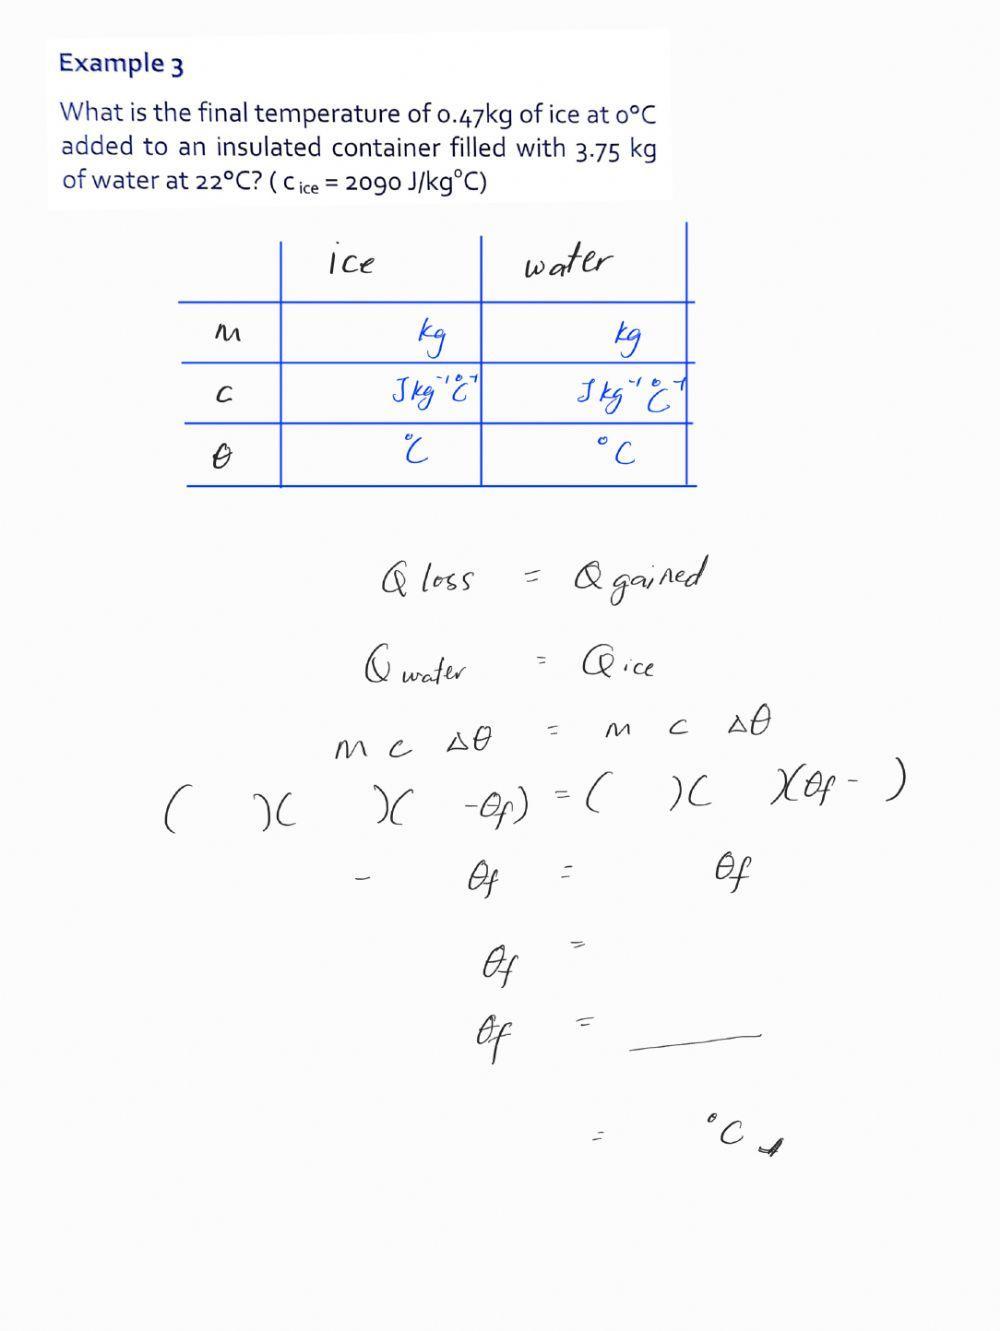 Example 3
What is the final temperature of 0.47kg of ice at 0°C
added to an insulated container filled with 3.75 kg
of water at 22°C? ( c ice = 2090 J/kg°C)
ice water
m kg kg
c J kg⁻¹ °C⁻¹ J kg⁻¹ °C⁻¹
θ °C °C
Q loss = Q gained
Q water = Q ice
m c Δθ = m c Δθ
( )( )( -θf) = ( )( )(θf - )
- θf = θf
θf =
θf = ____
= °C